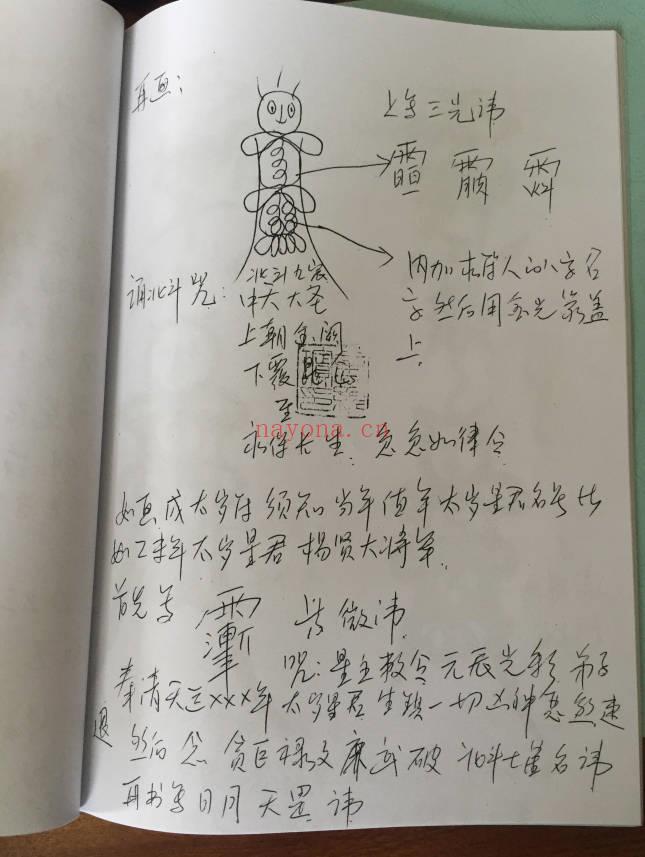 再画:
上写三光讳
诵北斗咒:
北斗九宸
中天大圣
上朝金阙
下覆昆仑
内加求符人的八字名
字然后用金光篆盖
上
至
nayona.cn
求保长生 急急如律令
如画成太岁符 须知当年值年太岁星君名号比
如乙未年太岁星君杨贤大将军
首先写 紫微讳
咒:星主敕令 元辰光彩 弟子
奉请天运×××年太岁星君 生镇一切凶神恶煞速
退 然后念 贪巨禄文廉武破 北斗七星名讳
再书写日月天罡讳